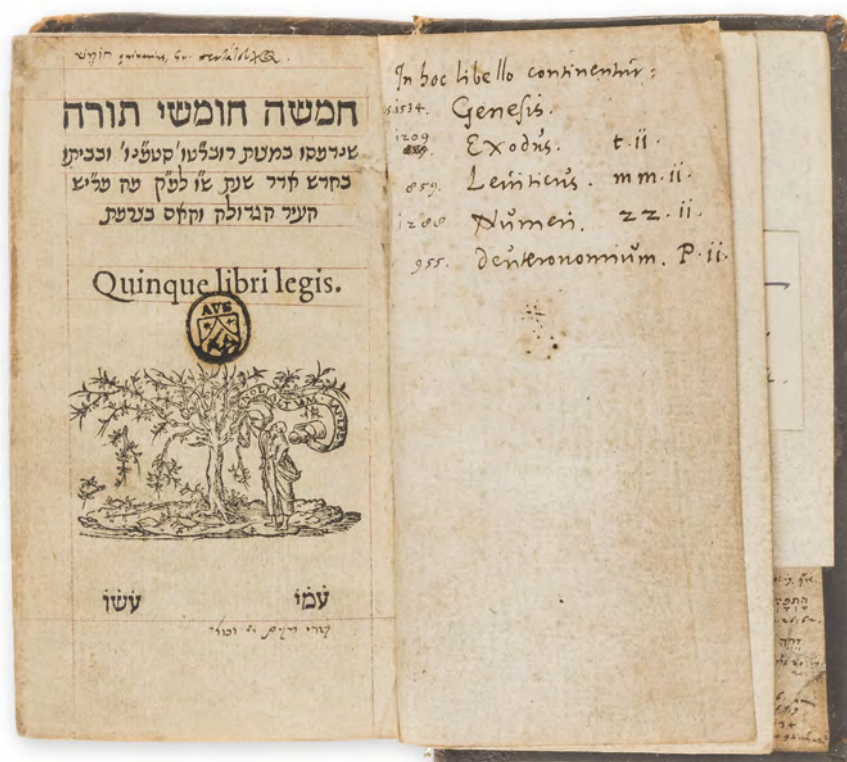 חמשה חומשי תורה
שנדפסו במצות רוברטו' סטפנו' ובביתו
בחדש אדר שנת ש"ו לפ"ק פה פריש
העיר הגדולה
Quinque libri legis.
AVE
NOLI ALTUM SAPERE
עמי עשו
In hoc libello continentur:
1534. Genesis.
1209 Exodus. t.ii.
859. Leuiticus. mm.ii.
1288 Numeri. zz.ii.
955. Deuteronomium. P.ii.